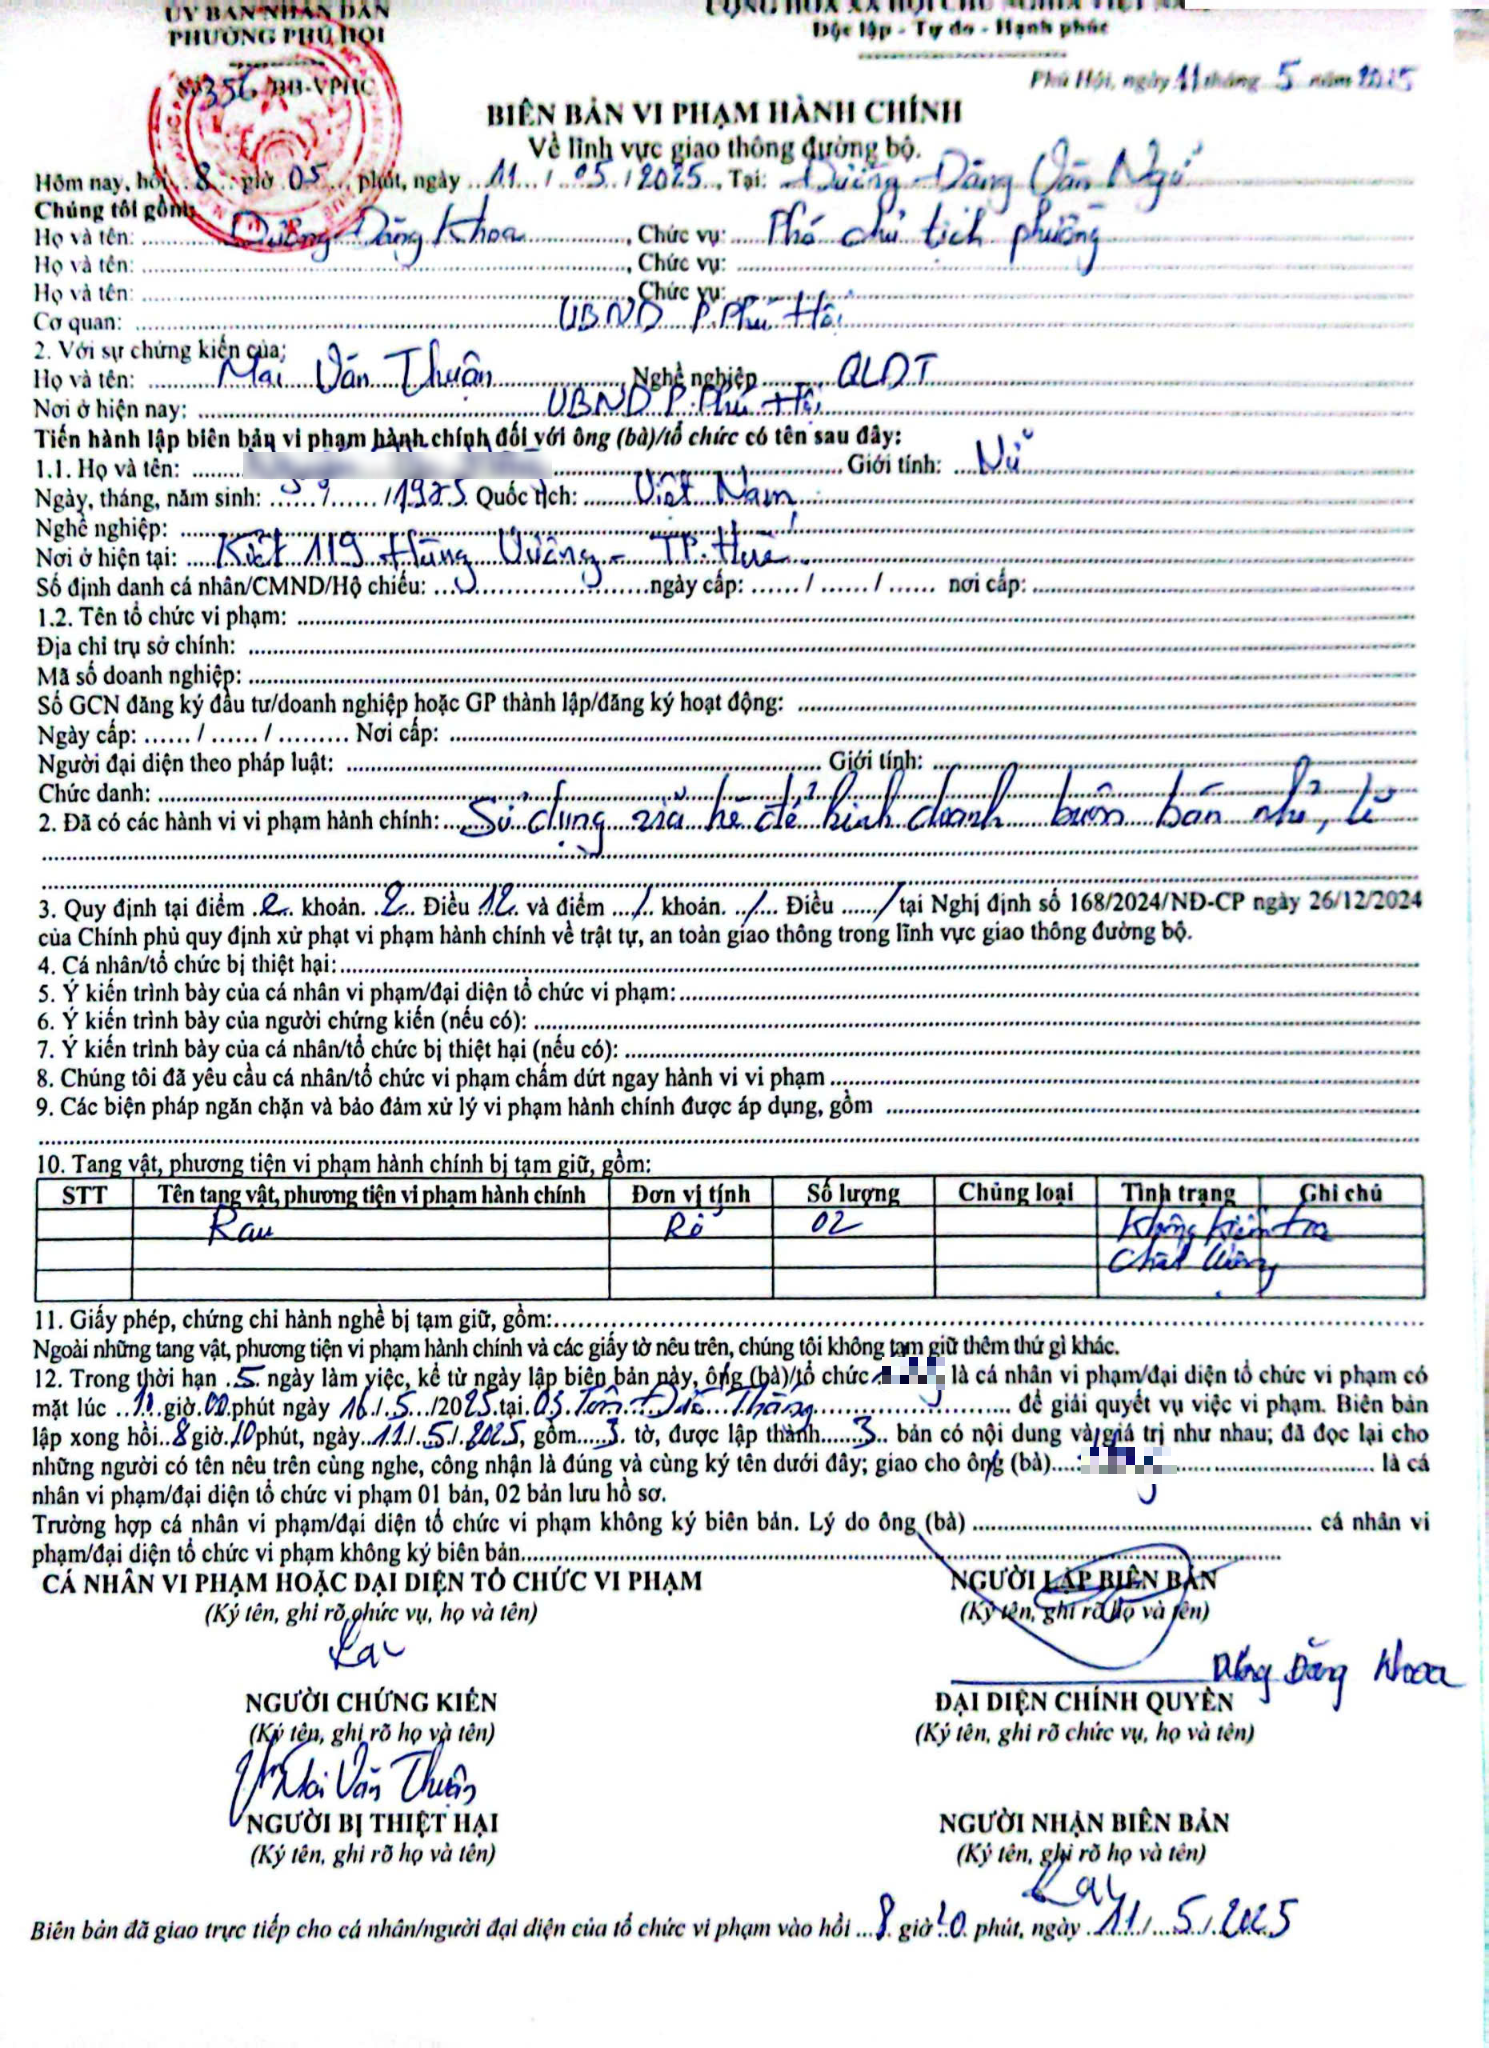 ỦY BAN NHÂN DÂN
PHƯỜNG PHÚ HỘI
CỘNG HÒA XÃ HỘI CHỦ NGHĨA VIỆT NA
Độc lập - Tự do - Hạnh phúc
Số 356/BB-VPHC
Phú Hội, ngày 11 tháng 5 năm 2025
BIÊN BẢN VI PHẠM HÀNH CHÍNH
Về lĩnh vực giao thông đường bộ.
Hôm nay, hồi 8 giờ 05 phút, ngày 11 / 05 / 2025, Tại: Đường Đặng Văn Ngữ
Chúng tôi gồm:
Họ và tên: Dương Đăng Khoa, Chức vụ: Phó chủ tịch phường
Họ và tên: , Chức vụ:
Họ và tên: , Chức vụ:
Cơ quan: UBND P. Phú Hội
2. Với sự chứng kiến của:
Họ và tên: Mai Văn Thuận, Nghề nghiệp QLĐT
Nơi ở hiện nay: UBND P. Phú Hội
Tiến hành lập biên bản vi phạm hành chính đối với ông (bà)/tổ chức có tên sau đây:
1.1. Họ và tên: Giới tính: Nữ
Ngày, tháng, năm sinh: / /1975 Quốc tịch: Việt Nam
Nghề nghiệp:
Nơi ở hiện tại: Kiệt 119 Hùng Vương - TP. Huế
Số định danh cá nhân/CMND/Hộ chiếu: ngày cấp: / / nơi cấp:
1.2. Tên tổ chức vi phạm:
Địa chỉ trụ sở chính:
Mã số doanh nghiệp:
Số GCN đăng ký đầu tư/doanh nghiệp hoặc GP thành lập/đăng ký hoạt động:
Ngày cấp: / / Nơi cấp:
Người đại diện theo pháp luật: Giới tính:
Chức danh:
2. Đã có các hành vi vi phạm hành chính: Sử dụng vỉa hè để kinh doanh buôn bán nhỏ, lẻ
3. Quy định tại điểm e khoản 2 Điều 12 và điểm / khoản / Điều / tại Nghị định số 168/2024/NĐ-CP ngày 26/12/2024
của Chính phủ quy định xử phạt vi phạm hành chính về trật tự, an toàn giao thông trong lĩnh vực giao thông đường bộ.
4. Cá nhân/tổ chức bị thiệt hại:
5. Ý kiến trình bày của cá nhân vi phạm/đại diện tổ chức vi phạm:
6. Ý kiến trình bày của người chứng kiến (nếu có):
7. Ý kiến trình bày của cá nhân/tổ chức bị thiệt hại (nếu có):
8. Chúng tôi đã yêu cầu cá nhân/tổ chức vi phạm chấm dứt ngay hành vi vi phạm
9. Các biện pháp ngăn chặn và bảo đảm xử lý vi phạm hành chính được áp dụng, gồm
10. Tang vật, phương tiện vi phạm hành chính bị tạm giữ, gồm:
STT Tên tang vật, phương tiện vi phạm hành chính Đơn vị tính Số lượng Chủng loại Tình trạng Ghi chú
Rau Rổ 02 Không kiểm tra
chất lượng
11. Giấy phép, chứng chỉ hành nghề bị tạm giữ, gồm:
Ngoài những tang vật, phương tiện vi phạm hành chính và các giấy tờ nêu trên, chúng tôi không tạm giữ thêm thứ gì khác.
12. Trong thời hạn 5 ngày làm việc, kể từ ngày lập biên bản này, ông (bà)/tổ chức là cá nhân vi phạm/đại diện tổ chức vi phạm có
mặt lúc giờ 00 phút ngày 16 / 5 /2025 tại 03 Tôn Đức Thắng để giải quyết vụ việc vi phạm. Biên bản
lập xong hồi 8 giờ 10 phút, ngày 11 / 5 / 2025, gồm 3 tờ, được lập thành 3 bản có nội dung và giá trị như nhau; đã đọc lại cho
những người có tên nêu trên cùng nghe, công nhận là đúng và cùng ký tên dưới đây; giao cho ông (bà) là cá
nhân vi phạm/đại diện tổ chức vi phạm 01 bản, 02 bản lưu hồ sơ.
Trường hợp cá nhân vi phạm/đại diện tổ chức vi phạm không ký biên bản. Lý do ông (bà) cá nhân vi
phạm/đại diện tổ chức vi phạm không ký biên bản
CÁ NHÂN VI PHẠM HOẶC ĐẠI DIỆN TỔ CHỨC VI PHẠM
(Ký tên, ghi rõ chức vụ, họ và tên)
NGƯỜI LẬP BIÊN BẢN
(Ký tên, ghi rõ họ và tên)
Dương Đăng Khoa
NGƯỜI CHỨNG KIẾN
(Ký tên, ghi rõ họ và tên)
Mai Văn Thuận
ĐẠI DIỆN CHÍNH QUYỀN
(Ký tên, ghi rõ chức vụ, họ và tên)
NGƯỜI BỊ THIỆT HẠI
(Ký tên, ghi rõ họ và tên)
NGƯỜI NHẬN BIÊN BẢN
(Ký tên, ghi rõ họ và tên)
Biên bản đã giao trực tiếp cho cá nhân/người đại diện của tổ chức vi phạm vào hồi 8 giờ 10 phút, ngày 11 / 5 / 2025